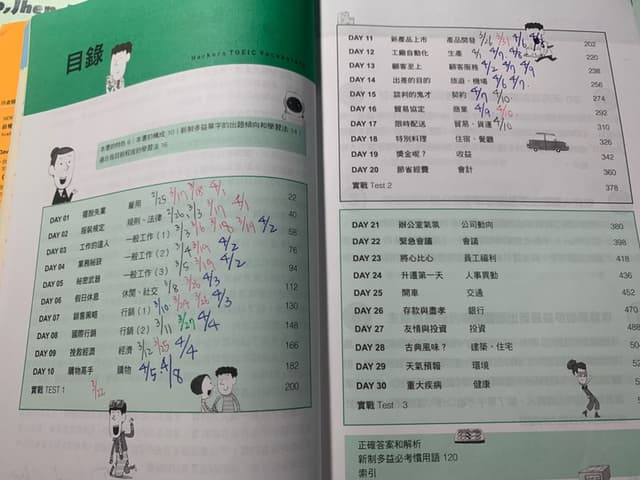 目錄
Hackers TOEIC Vocabulary
本書的特色 6 | 本書的構成 10 | 新制多益單字的出題傾向和學習法 14
適合是目前程度的學習法 16
DAY 01 擺脫失業 雇用 2/25 3/17 3/18 4/1 22
DAY 02 服裝規定 規則、法律 2/26 3/3 3/17 4/1 40
DAY 03 工作的達人 一般工作(1) 3/3 3/6 3/18 3/19 4/2 58
DAY 04 業務秘訣 一般工作(2) 3/4 3/19 4/2 76
DAY 05 秘密武器 一般工作(3) 3/5 3/19 4/2 94
DAY 06 假日休息 休閒、社交 3/8 3/26 4/3 112
DAY 07 銷售策略 行銷(1) 3/10 3/24 3/26 4/3 130
DAY 08 國際行銷 行銷(2) 3/11 3/27 4/4 148
DAY 09 挽救經濟 經濟 3/12 3/25 4/4 166
DAY 10 購物高手 購物 4/5 4/8 182
實戰 TEST 1 3/22 200
DAY 11 新產品上市 產品開發 3/26 4/6 202
DAY 12 工廠自動化 生產 4/1 4/7 4/8 220
DAY 13 顧客至上 顧客服務 4/2 4/7 4/9 238
DAY 14 出差的目的 旅遊、機場 4/6 4/7 256
DAY 15 談判的鬼才 契約 4/7 4/10 274
DAY 16 貿易協定 商業 4/9 4/10 292
DAY 17 限時配送 貿易、貨運 4/10 310
DAY 18 特別料理 住宿、餐廳 326
DAY 19 獎金呢？ 收益 342
DAY 20 節省經費 會計 360
實戰 Test 2 378
DAY 21 辦公室氣氛 公司動向 380
DAY 22 緊急會議 會議 398
DAY 23 將心比心 員工福利 418
DAY 24 升遷第一天 人事異動 436
DAY 25 開車 交通 452
DAY 26 存款與盡孝 銀行 470
DAY 27 友情與投資 投資 488
DAY 28 古典風味？ 建築、住宅
DAY 29 天氣預報 環境
DAY 30 重大疾病 健康
實戰 Test 3
正確答案和解析
新制多益必考慣用語 120
索引